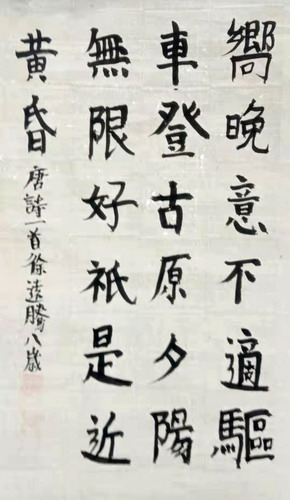 嚮晚意不適驅
車登古原夕陽
無限好祇是近
黃昏
唐詩一首徐遠騰八歲